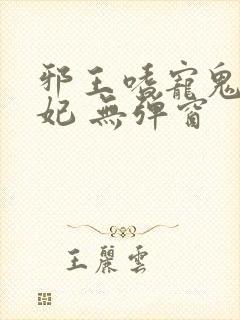 邪王嗜寵鬼
妃 無彈窗
王麗雲